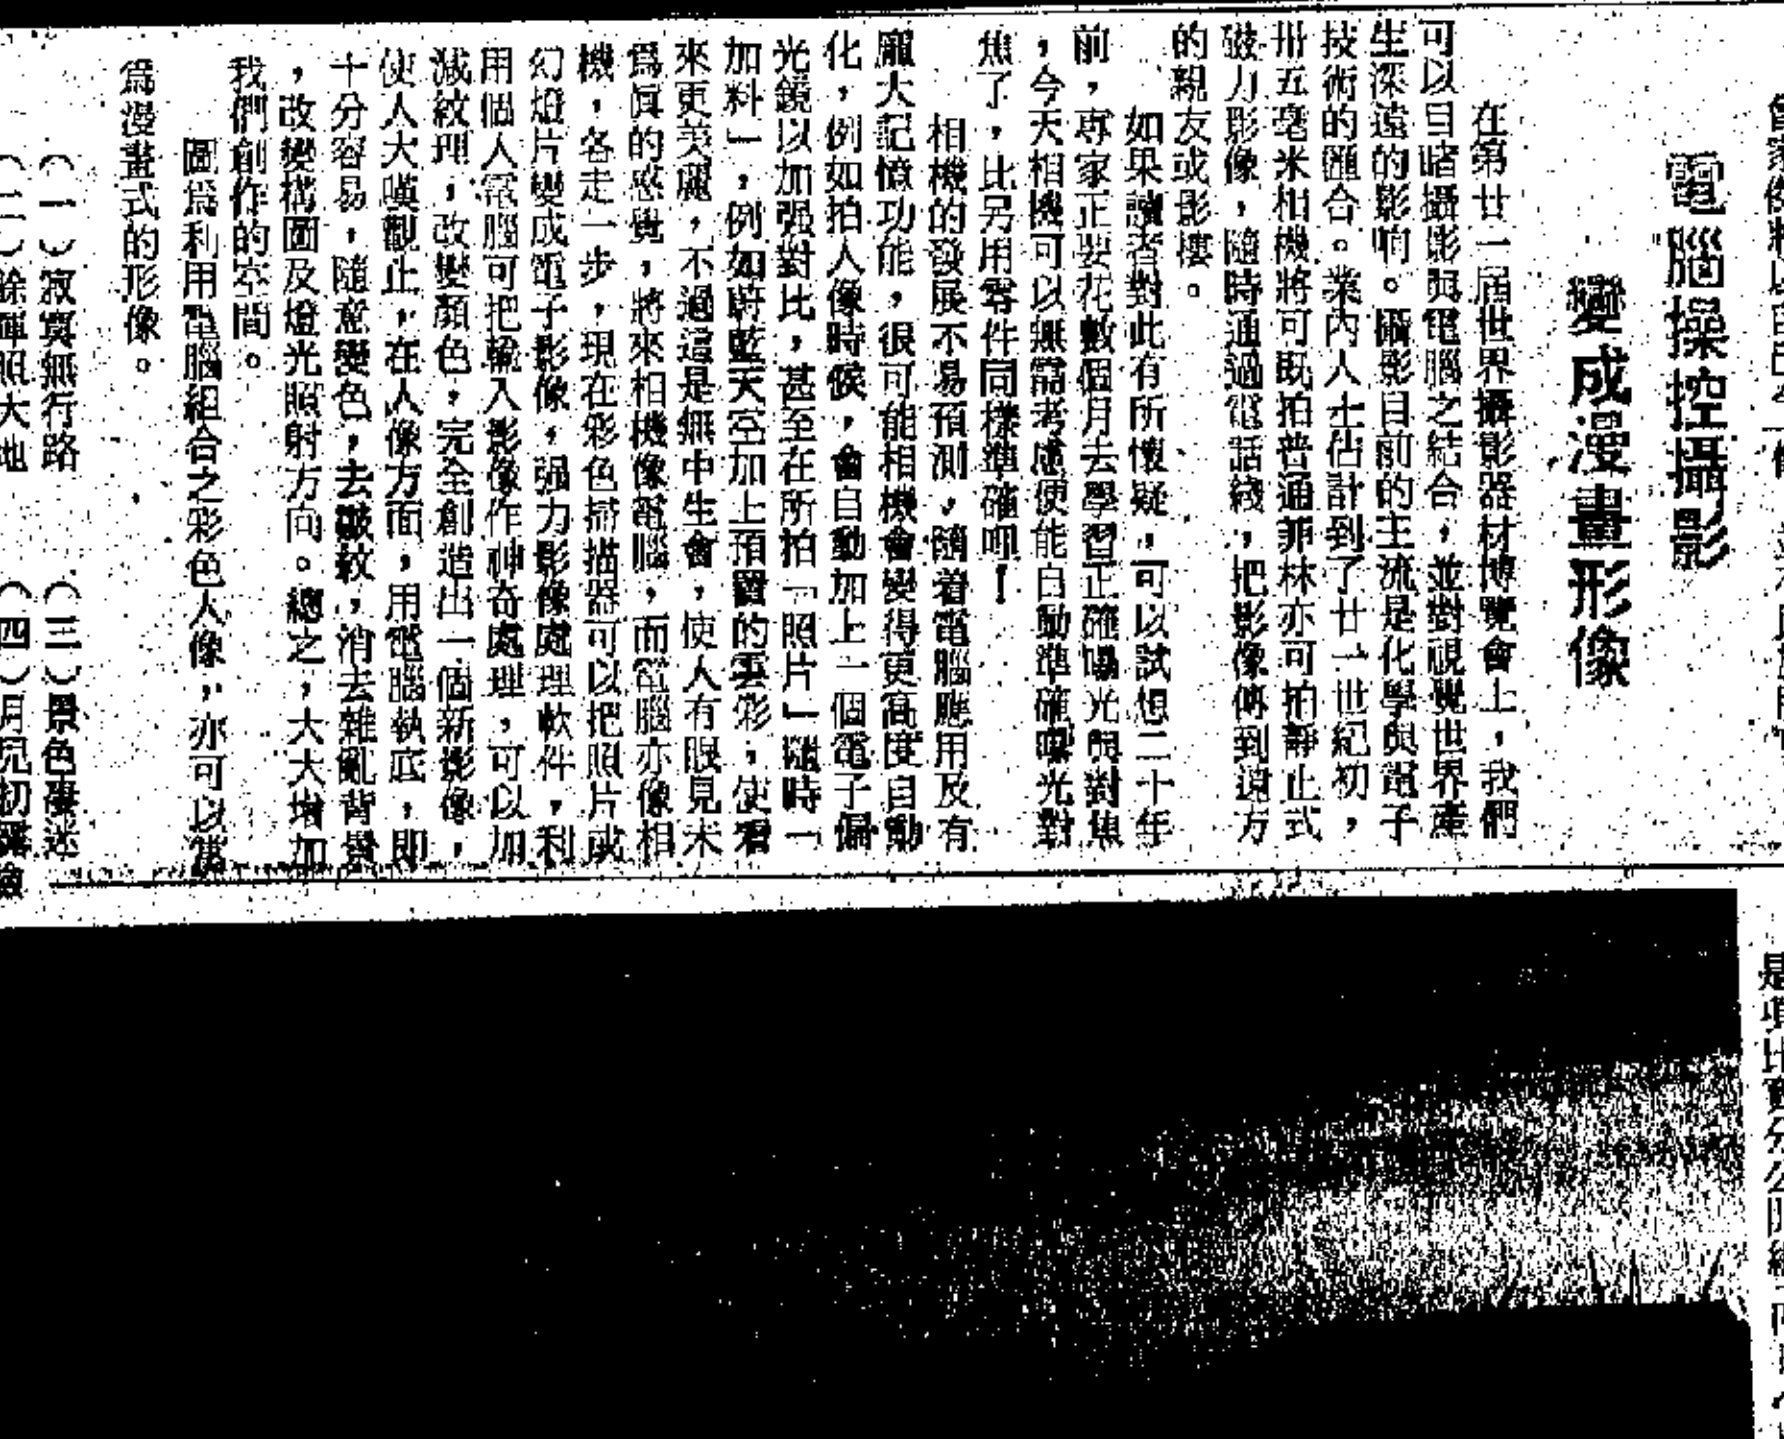 電腦操控攝影
變成漫畫形像
在第廿一屆世界攝影器材博覽會上，我們
可以目睹攝影與電腦之結合，並對視覺世界產
生深遠的影响。攝影目前的主流是化學與電子
技術的匯合。業內人士估計到了廿一世紀初，
卅五毫米相機將可既拍普通菲林亦可拍靜止式
磁力影像，隨時通過電話綫，把影像傳到遠方
的親友或影樓。
如果讀者對此有所懷疑，可以試想二十年
前，專家正要花數個月去學習正確曝光與對焦
，今天相機可以無需考慮便能自動準確曝光對
焦了，比另用零件同樣準確呾！
相機的發展不易預測，隨着電腦應用及有
龐大記憶功能，很可能相機會變得更高度自動
化，例如拍人像時候，會自動加上一個電子偏
光鏡以加强對比，甚至在所拍「照片」隨時一
加料」，例如蔚藍天空加上預留的雲彩，使看
來更美麗，不過這是無中生會，使人有眼見未
爲眞的感覺，將來相機像電腦，而電腦亦像相
機，各走一步，現在彩色掃描器可以把照片或
幻燈片變成電子影像，强力影像處理軟件，利
用個人電腦可把輸入影像作神奇處理，可以加
減紋理，改變顏色，完全創造出一個新影像，
使人大嘆觀止，在人像方面，用電腦執底，即
十分容易，隨意變色，去皺紋，消去雜亂背景
，改變構圖及燈光照射方向。總之，大大增加
我們創作的空間。
圖爲利用電腦組合之彩色人像，亦可以當
爲漫畫式的形像。
（一）寂寞無行路
（三）景色凄迷
（二）餘暉照大地
（四）月兒初露臉